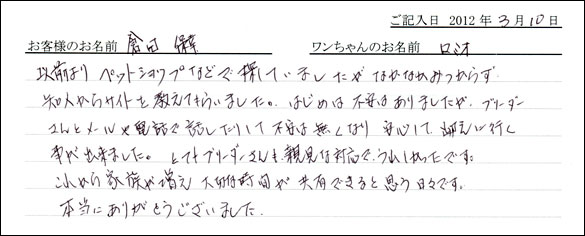 ご記入日 2012年3月10日
お客様のお名前 倉田 ワンちゃんのお名前 ロミオ
以前より ペットショップなどで探していましたがなかなかみつからず
知人からサイトを教えてもらいました。はじめは不安はありましたが、ブリーダー
さんとメールや電話で話したりして不安は無くなり 安心して迎えに行く
事が出来ました。とてもブリーダーさんも親身な対応で、うれしかったです。
これから家族が増え 大切な時間が共有できると思う日々です。
本当にありがとうございました。